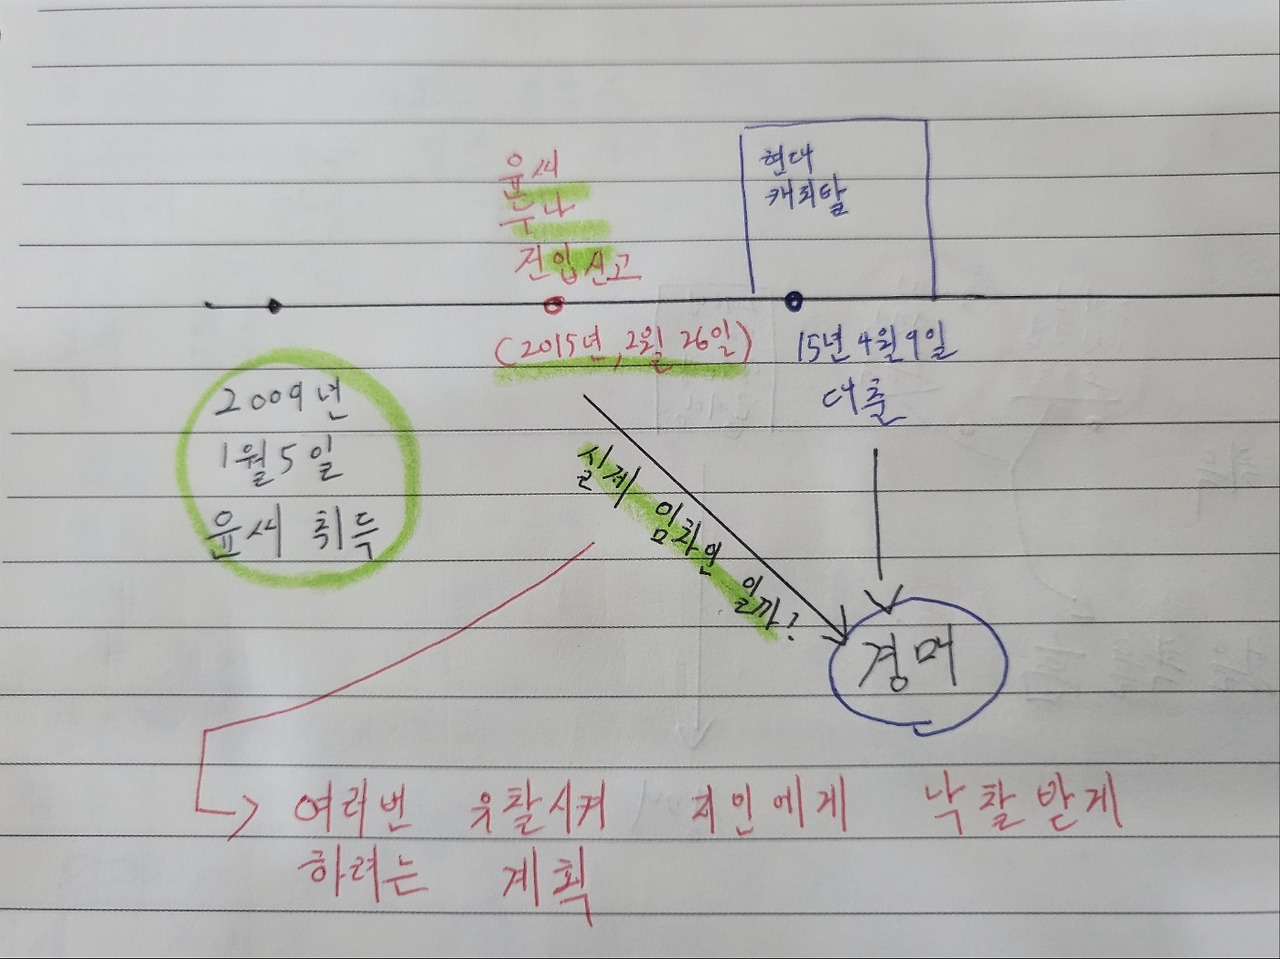 윤씨
누나
전입신고
현대
캐피탈
(2015년, 2월 26일)
15년 4월 9일
대출
2009년
1월 5일
윤씨 취득
실제 임차인 일까?
경매
여러번 유찰시켜 지인에게 낙찰받게
하려는 계획